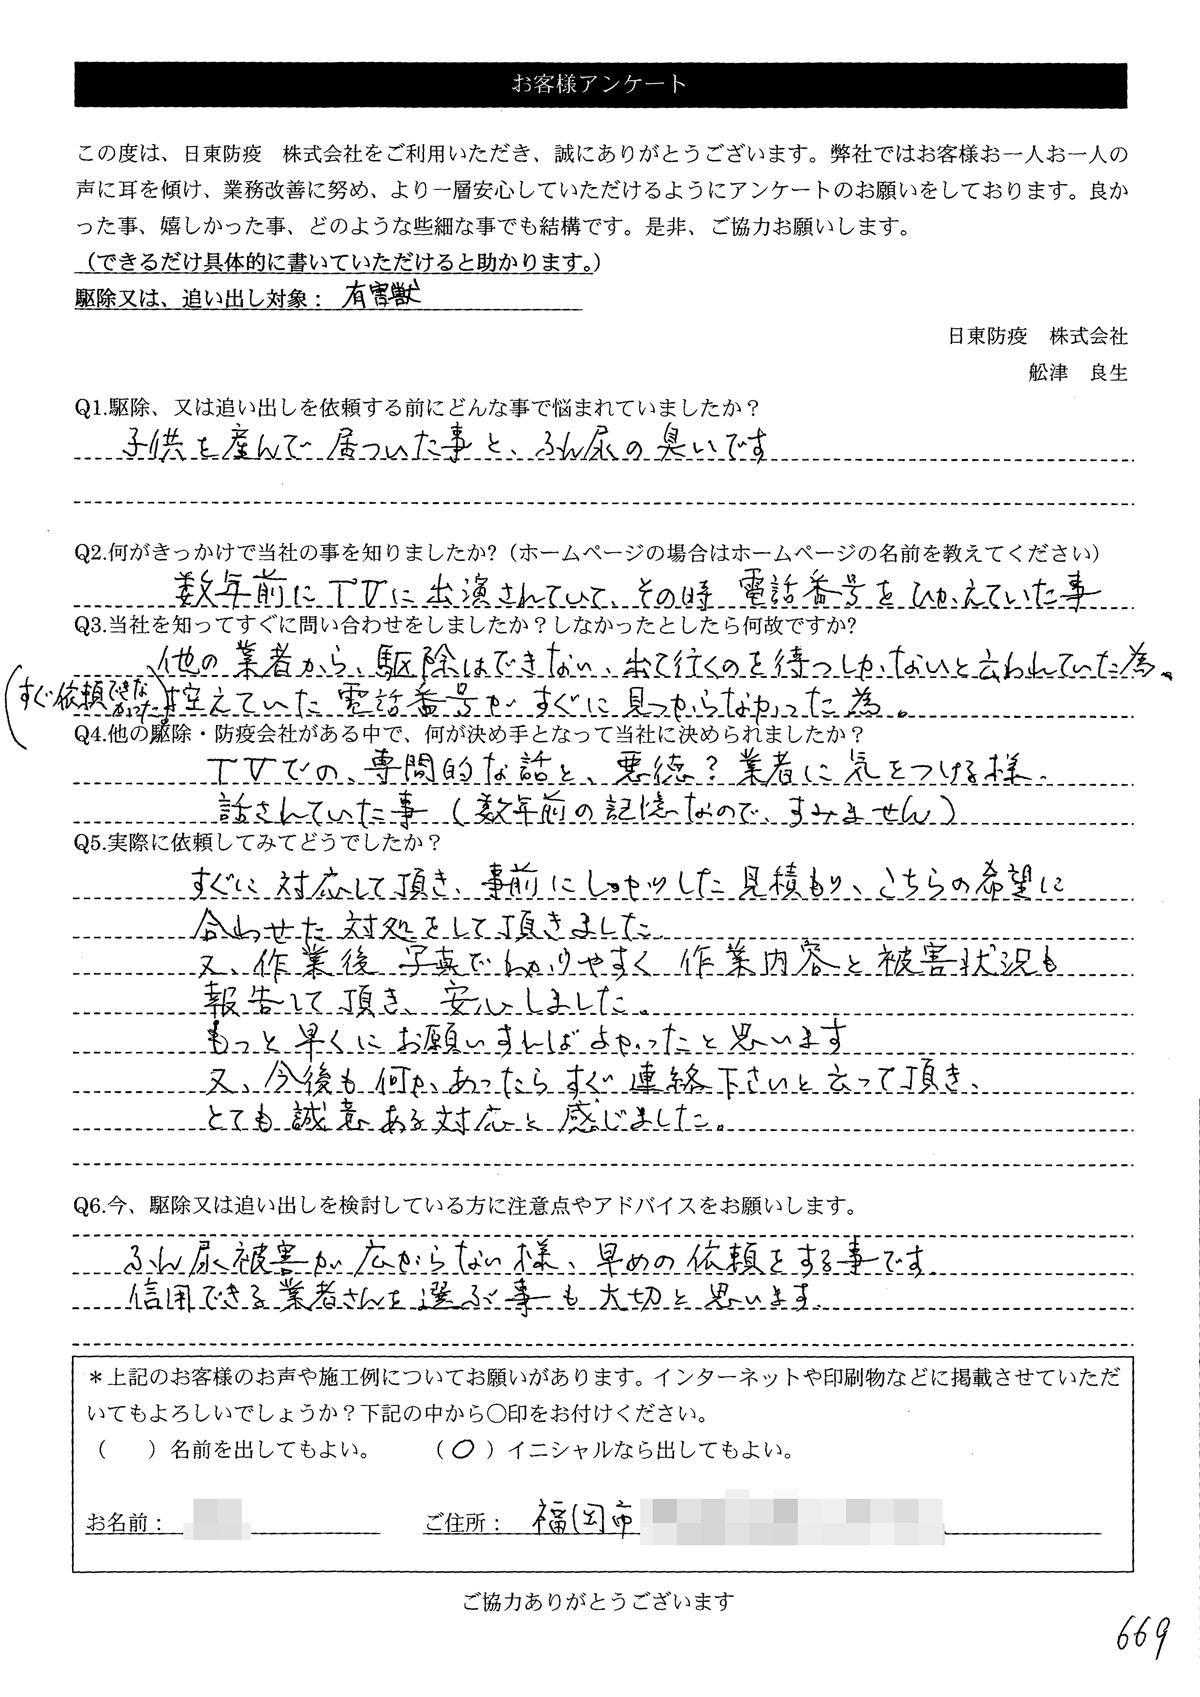 お客様アンケート
この度は、日東防疫　株式会社をご利用いただき、誠にありがとうございます。弊社ではお客様お一人お一人の
声に耳を傾け、業務改善に努め、より一層安心していただけるようにアンケートのお願いをしております。良か
った事、嬉しかった事、どのような些細な事でも結構です。是非、ご協力お願いします。
（できるだけ具体的に書いていただけると助かります。）
駆除又は、追い出し対象： 有害獣
日東防疫　株式会社
舩津　良生
Q1.駆除、又は追い出しを依頼する前にどんな事で悩まれていましたか？
子供を産んで居ついた事と、ふん尿の臭いです
Q2.何がきっかけで当社の事を知りましたか?（ホームページの場合はホームページの名前を教えてください）
数年前にTVに出演されていて、その時 電話番号をひかえていた事
Q3.当社を知ってすぐに問い合わせをしましたか？しなかったとしたら何故ですか?
他の業者から、駆除はできない、出て行くのを待つしかないと云われていた為。
(すぐ依頼できなかった) 控えていた電話番号がすぐに見つからなかった為。
Q4.他の駆除・防疫会社がある中で、何が決め手となって当社に決められましたか？
TVでの、専門的な話と、悪徳？業者に気をつける様、
話されていた事（数年前の記憶なので、すみません）
Q5.実際に依頼してみてどうでしたか？
すぐに対応して頂き、事前にしっかりした見積もり、こちらの希望に
合わせた対処をして頂きました
又、作業後 写真でわかりやすく 作業内容と被害状況も
報告して頂き、安心しました。
もっと早くにお願いすればよかったと思います
又、今後も何かあったらすぐ連絡下さいと云って頂き、
とても誠意ある対応と感じました。
Q6.今、駆除又は追い出しを検討している方に注意点やアドバイスをお願いします。
ふん尿被害が広がらない様、早めの依頼をする事です。
信用できる業者さんを選ぶ事も大切と思います。
＊上記のお客様のお声や施工例についてお願いがあります。インターネットや印刷物などに掲載させていただ
いてもよろしいでしょうか？下記の中から〇印をお付けください。
（　　）名前を出してもよい。　　（ 〇 ）イニシャルなら出してもよい。
お名前：　　ご住所： 福岡市
ご協力ありがとうございます
669